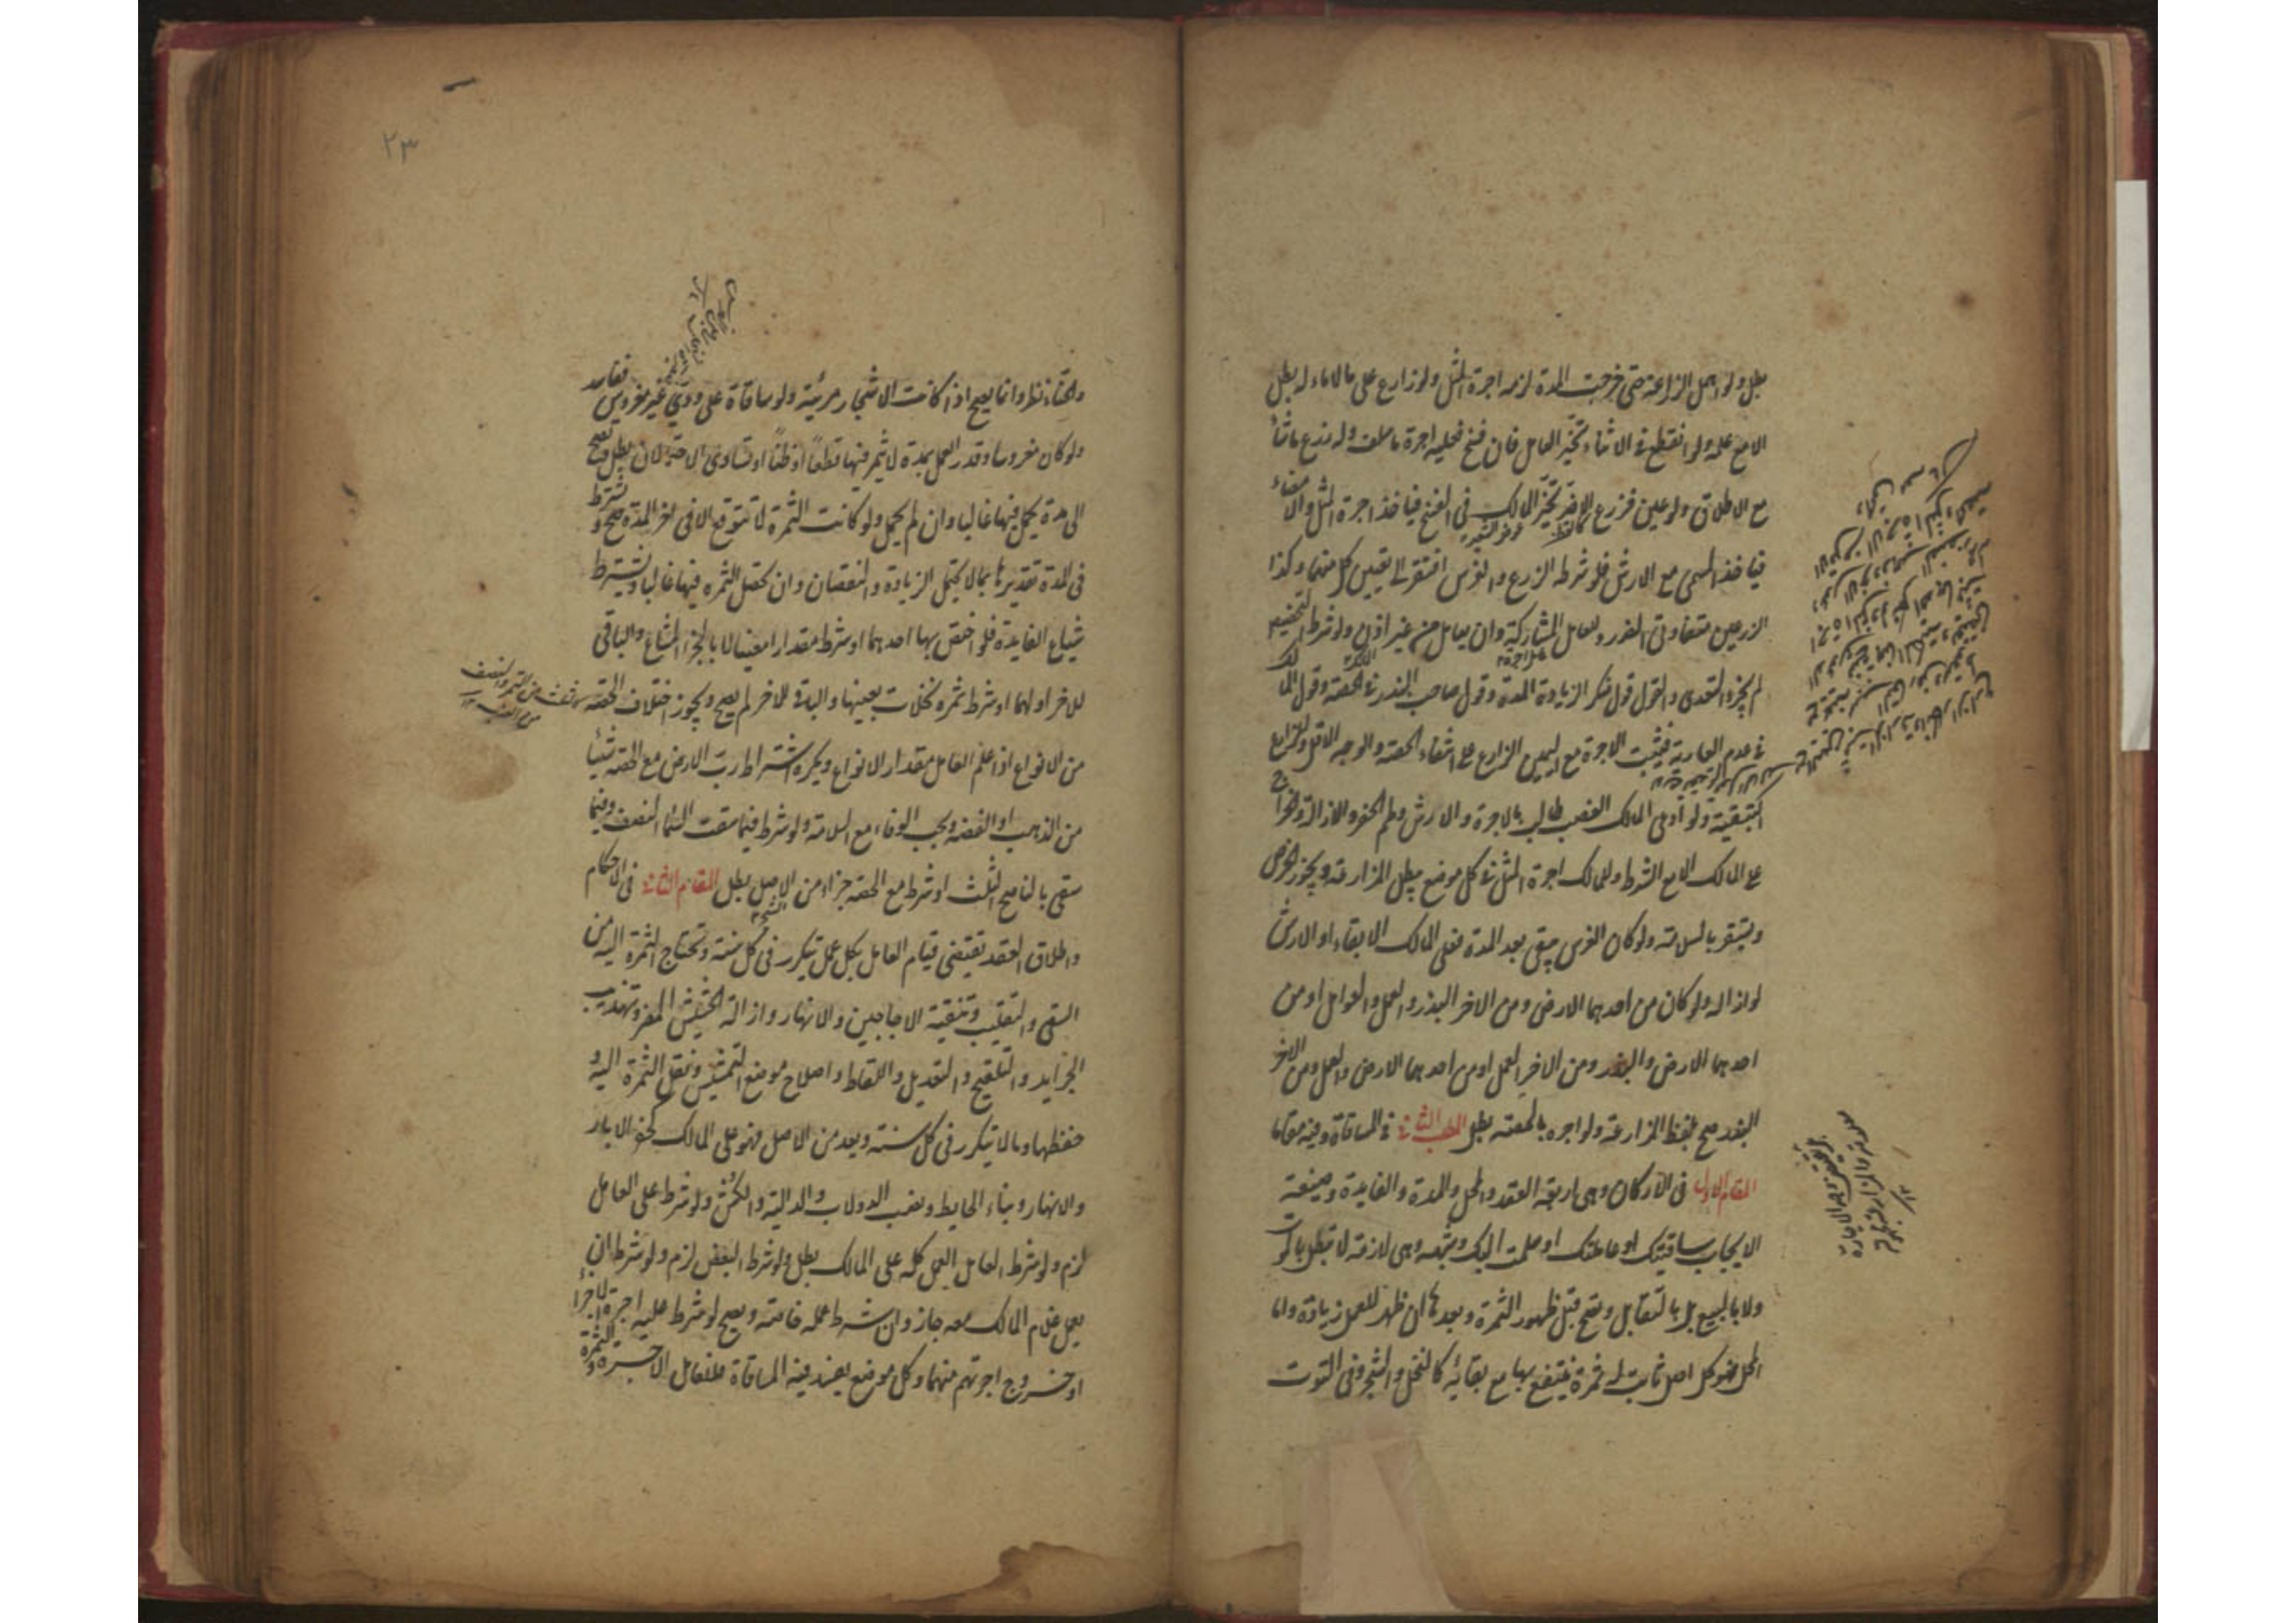 بطل ولو اهمل الزراعة حتى خرجت المدة لزمه اجرة المثل ولو زارع على مالا ماء له بطل
الا مع علمه ولو انقطع في الاثناء تخير العامل فان فسخ فعليه اجرة ما سلف وله زرع ما شاء
مع الاطلاق ولو عين فزرع الاضر تخير المالك في الفسخ فياخذ اجرة المثل والامضاء
فياخذ المسمى مع الارش فلو شرط الزرع والغرس افتقر الى تعيين كل منهما وكذا
الزرعين متفاوتي الضرر وللعامل المشاركة وان يعامل من غير اذن ولو شرط التخصيص
لم يجز التعدي والقول قول منكر الزيادة المدة وقول صاحب البذر في الحصة وقول المالك
في عدم العارية فيثبت الاجرة مع يمين الزارع على انتفاء الحصة والوجه الاقل وللزارع
التبقية ولو ادعى المالك الغصب طالب بالاجرة والارش وطم الحفر والازالة والخراج
على المالك الا مع الشرط وللمالك اجرة المثل في كل موضع يبطل المزارعة ويجوز الخرص
ويستقر بالسلامة ولو كان الغرس يبقى بعد المدة فعلى المالك الابقاء او الارش
لو ازاله ولو كان من احدهما الارض ومن الاخر البذر والعمل والعوامل او من
احدهما الارض والبذر ومن الاخر العمل او من احدهما الارض والعمل ومن الاخر
البذر صح بلفظ المزارعة ولو اجره بالحصة بطل المطلب الثاني في المساقاة وفيه مقامان
المقام الاول في الاركان وهي اربعة العقد والمحل والمدة والفايدة وصيغة
الايجاب ساقيتك او عاملتك او سلمت اليك وشبهه وهي لازمة لا تبطل بالموت
ولا بالبيع بل بالتقايل وتصح قبل ظهور الثمرة وبعدها ان ظهر للعمل زيادة واما
المحل فهو كل اصل ثابت له ثمرة ينتفع بها مع بقائه كالنخل والشجر وفي التوت
٢٣
والحناء نظر وانما يصح اذا كانت الاشجار مرئية ولو ساقاه على ودي غير مغروس ففاسد
ولو كان مغروسا وقدر العمل بمدة لا يثمر فيها قطعا او ظنا او تساوى الاحتمالان بطل وتصح
الى مدة يحمل فيها غالبا وان لم يحمل ولو كانت الثمرة لا تتوقع الا في اخر المدة صح ويشترط
في المدة تقديرها بما لا يحتمل الزيادة والنقصان وان تحصل الثمرة فيها غالبا ويشترط
شياع الفايدة فلو اختص بها احدهما او شرط مقدارا معينا لا بالجزء المشاع والباقي
للاخر او لهما او شرط ثمرة نخلات بعينها والباقي للاخر لم يصح ويجوز اختلاف الحصة
من الانواع اذا علم العامل مقدار الانواع ويكره اشتراط رب الارض مع الحصة شيئا
من الذهب او الفضة ويجب الوفاء مع السلامة ولو شرط فيما سقت السماء النصف وفيما
سقى بالناضح الثلث او شرط مع الحصة جزءا من الاصل بطل المقام الثاني في الاحكام
واطلاق العقد يقتضي قيام العامل بكل عمل يتكرر في كل سنة وتحتاج الثمرة اليه من
السقي والتقليب وتنقية الاجاجين والانهار وازالة الحشيش المضر وتهذيب
الجرايد والتلقيح والتعديل واللقاط واصلاح موضع التشميس ونقل الثمرة اليه و
حفظها وما لا يتكرر في كل سنة ويعد من الاصل فهو على المالك كحفر الابار
والانهار وبناء الحايط ونصب الدولاب والدالية والكش ولو شرط على العامل
لزم ولو شرط العامل العمل كله على المالك بطل ولو شرط البعض لزم ولو شرط ان
يعمل غلام المالك معه جاز وان شرط عمله خاصته ويصح لو شرط عليه اجرة الاجراء
او خروج اجرتهم منهما وكل موضع يفسد فيه المساقاة فللعامل الاجرة والثمرة